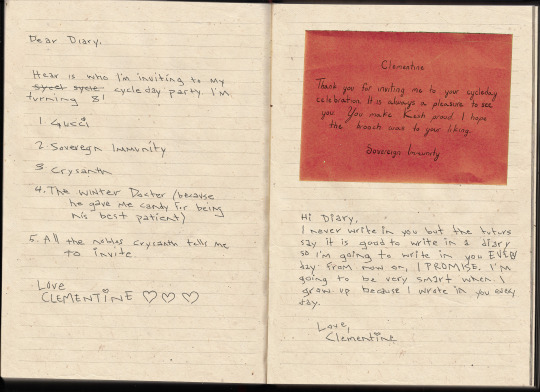 Dear Diary,
Hear is who I'm inviting to my
cycleday party. I'm
turning 8!
1. Gucci
2. Sovereign Immunity
3. Crysanth
4. The Winter Doctor (because
he gave me candy for being
his best patient)
5. All the nobles Crysanth tells me
to invite.
Love
CLEMENTINE ♡ ♡ ♡
Clementine
Thank you for inviting me to your cycleday
celebration. It is always a pleasure to see
you. You make Kesh proud. I hope
the broach was to your liking.
Sovereign Immunity
Hi Diary,
I never write in you but the tuturs
say it is good to write in a diary
so I'm going to write in you EVERY
day from now on, I PROMISE. I'm
going to be very smart when I
grow up because I wrote in you every
day.
Love,
Clementine